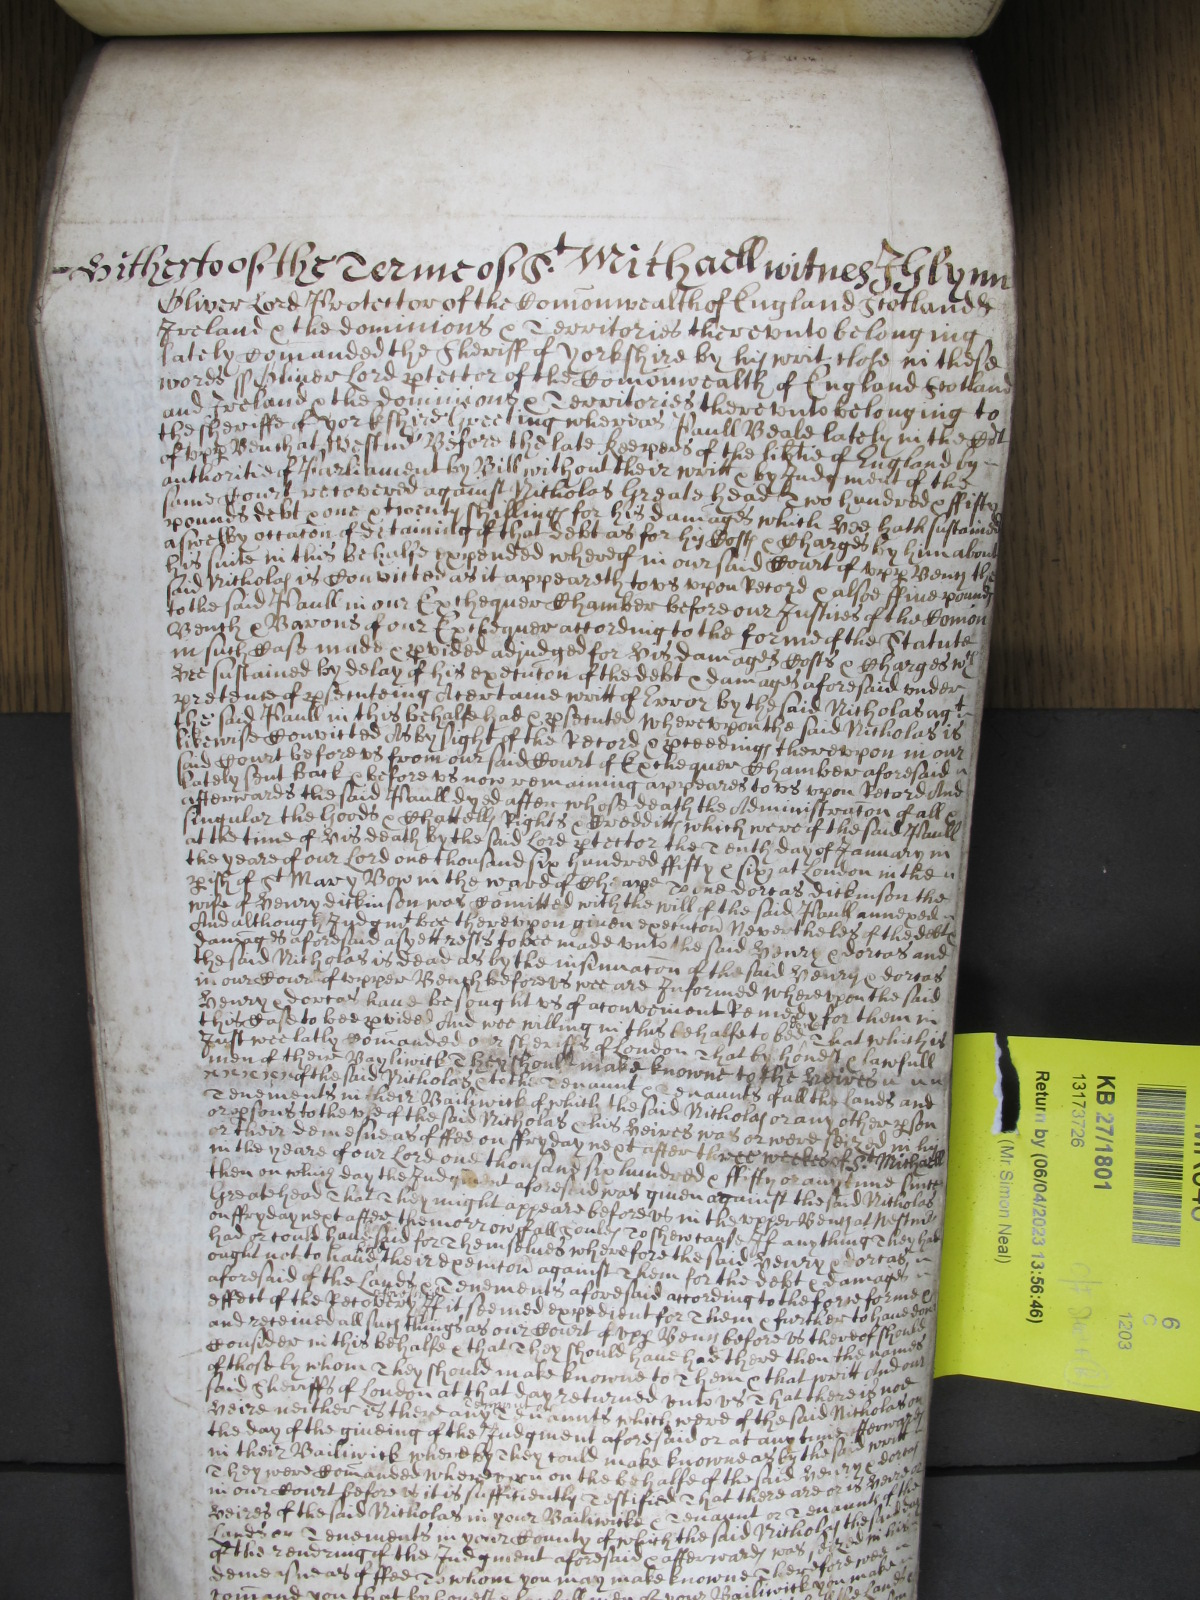 Hitherto of the Terme of St Michaell witnes J Glynn
Oliver Lord Protector of the Comonwealth of England Scotland &
Ireland & the dominions & Territories thereunto belonging
lately Comanded the Sheriff of Yorkshire by his writ close in these
words ss Oliver Lord ptector of the Comonwealth of England Scotland
and Ireland & the dominions & Territories thereunto belonging to
the sheriffe of yorkshire Greeting whereas Paull Beale lately in the Cort
of upp Bench at Westm before the late Keepers of the libtie of England by
authoritie of Parliament by Bill without their writt & by Judgment of the
same Court recovered against Nicholas Greatehead Two hundred & ffifty
pounds debt & one & twenty shillings for his damages which Hee hath sustained
aswell by occacon of detaining of that debt as for his Costs & Charges by him about
his suite in this behalfe expended whereof in our said Court of upp Bench the
said Nicholas is Convicted as it appeareth to us upon Record & alsoe ffive pounds
to the said Paull in our Exchequer Chamber before our Justices of the Comon
Bench & Barons of our Exchequer according to the forme of the Statute
in such Case made & pvided adjudged for His damages Costs & Charges wch
Hee sustained by delay of his execucon of the debt & damages aforesaid under
pretence of psecuteing A certaine writt of Error by the said Nicholas agt
the said Paull in this behalfe had & psecuted whereupon the said Nicholas is
likewise Convicted As by sight of the Record & pceedings thereupon in our
said Court before us from our said Court of Exchequer Chamber aforesaid
lately sent back & before us now remaining appeares to us upon Record And
afterwards the said Paull dyed after whose death the Administracon of all &
singular the Goods & Chattells Rights & Credditts which were of the said Paull
at the time of His death by the said Lord ptector the Tenth day of January in
the yeare of our Lord one thousand six hundred ffifty & six at London in the
pish of St Mary Bow in the ward of Cheape To one dorcas dickinson the
wife of Henry dickinson was Comitted with the will of the said Paull annexed
And although Judgmt bee thereupon given execucon Neverthelesse of the debt &
damages aforesaid as yett rests to bee made unto the said Henry & dorcas and
the said Nicholas is dead as by the insinuacon of the said Henry & dorcas
in our Court of upper Bench before us wee are Informed whereupon the said
Henry & dorcas have besought us of a convenient Remedy for them in
this Case to bee pvided And wee willing in this behalfe to bee done That which is
Just wee lately Comanded our sheriffs of London That by honest & lawfull
men of their Bayliwick They should make knowne to the Heires
of the said Nicholas & to the Tenaunt & Tenaunts of all the lands and
Tenements in their Bailiwick of which the said Nicholas or any other pson
or psons to the use of the said Nicholas & his Heires was or were seized in his
or their demesne as of ffee on ffryday next after three weekes of St Michaell
in the yeare of our Lord one thousand six hundred & ffifty or any time since
then on which day the Judgment aforesaid was given against the said Nicholas
Greatehead That They might appeare before us in the upper Bench at Westmr
on ffryday next after the morrow of all Soules To shew cause If anything They had
had or could have said for Themselves wherefore the said Henry & dorcas
ought not to have their execucon against Them for the debt & damages
aforesaid of the Lands & Tenements aforesaid according to the force forme &
effect of the Recovery If it seemed expedient for Them & further to have done
and received all such things as our Court of upp Bench before us thereof should
Consider in this behalfe & that They should have had there then the names
of those by whom They should make knowne to Them & that writt And our
said Sheriffs of London at that day returned unto us That there is noe
Heire neither is there any Tenaunt Tenaunts which were of the said Nicholas on
the day of the giveing of the Judgment aforesaid or at any time afterwards
in their Bailiwick whereby They could make knowne as by the said writt
They were Comanded whereupon on the behalfe of the said Henry & dorcas
in our Court before us it is sufficiently Testified That there are or is Heire or
Heires of the said Nicholas in your Bailiwicke & Tenaunt or Tenaunts of the
Lands or Tenements in your County of which the said Nicholas the said day
of the rendring of the Judgment aforesaid & afterwards was seized in his
demesne as of ffee To whom you may make knowne Therefore wee
Comand you that by honest & lawfull men of your Bailiwick you make
KB 27/1801
13173726
Return by (06/04/2023 13:56:46)
(Mr Simon Neal)
1203
6